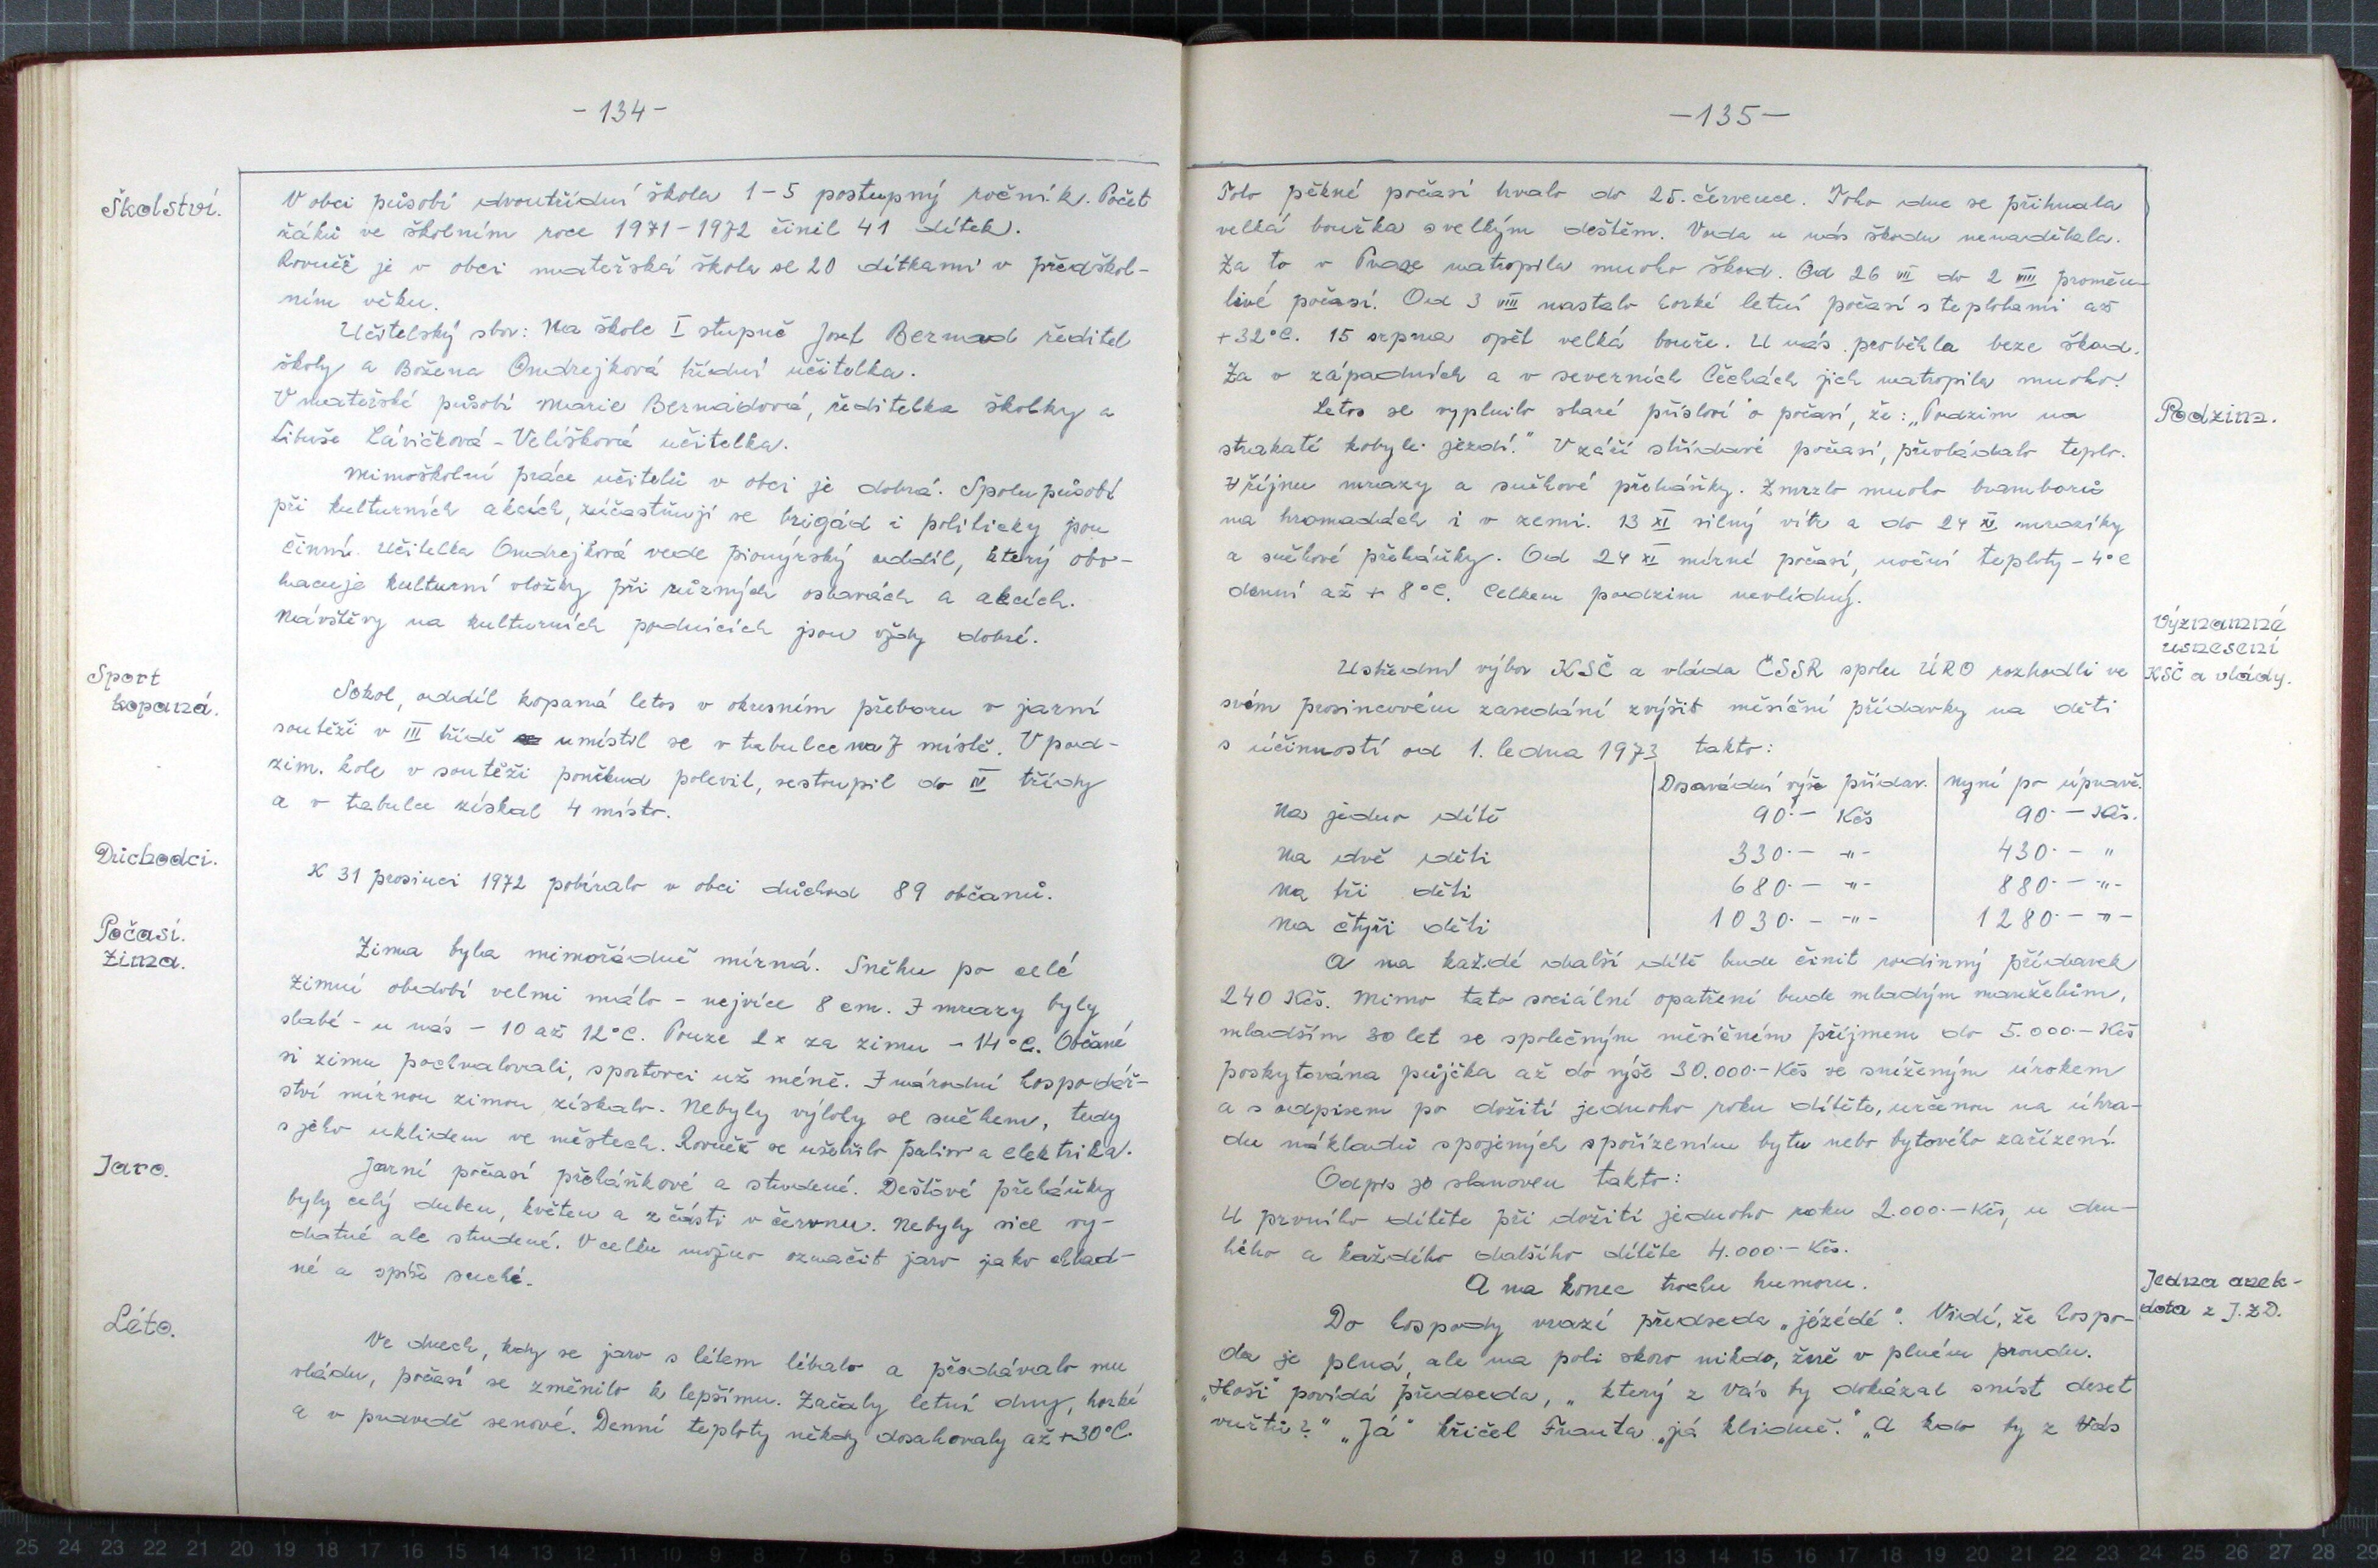 -134-
Školství.
V obci působí dvoutřídní škola 1-5 postupný ročník. Počet
žáků ve školním roce 1971-1972 činil 41 dítek.
Rovněž je v obci mateřská škola se 20 dítkami v předškol-
ním věku.
Učitelský sbor: Na škole I stupně Josef Bernad ředitel
školy a Božena Ondrejková třídní učitelka.
V mateřské působí Marie Bernadová, ředitelka školky a
Libuše Lávičková - Velíšková učitelka.
Mimoškolní práce učitelů v obci je dobrá. Spolu působí
při kulturních akcích, zúčastňují se brigád i politicky jsou
činní. Učitelka Ondrejková vede pionýrský oddíl, který obo-
hacuje kulturní vložky při různých oslavách a akcích.
Návštěvy na kulturních podnicích jsou vždy dobré.
Sport
kopaná.
Sokol, oddíl kopaná letos v okresním přeboru v jarní
soutěži v III třídě umístil se v tabulce na 7 místě. V pod-
zim. kole v soutěži poněkud polevil, sestoupil do IV třídy
a v tabulce získal 4 místo.
Důchodci.
K 31 prosinci 1972 pobíralo v obci důchod 89 občanů.
Počasí.
Zima.
Zima byla mimořádně mírná. Sněhu po celé
zimní období velmi málo - nejvíce 8 cm. I mrazy byly
slabé - u nás - 10 až 12°C. Pouze 2x za zimu - 14°C. Občané
si zimu pochvalovali, sportovci už méně. I národní hospodář-
ství mírnou zimou získalo. Nebyly výlohy se sněhem, tedy
s jeho uklidem ve městech. Rovněž se ušetřilo paliva a elektrika.
Jaro.
Jarní počasí přeháňkové a studené. Dešťové přeháňky
byly celý duben, květen a z části v červnu. Nebyly sice vy-
datné ale studené. V celku možno označit jaro jako chlad-
né a spíše suché.
Léto.
Ve dnech, kdy se jaro s létem líbalo a předávalo mu
vládu, počasí se změnilo k lepšímu. Začaly letní dny, horké
a v pravdě senové. Denní teploty někdy dosahovaly až +30°C.
-135-
Toto pěkné počasí trvalo do 25. července. Toho dne se přihnala
velká bouřka s velkým deštěm. Voda u nás škodu nenadělala.
Za to v Praze natropila mnoho škod. Od 26 VII do 2 VIII proměn-
livé počasí. Od 3 VIII nastalo horké letní počasí s teplotami až
+32°C. 15 srpna opět velká bouře. U nás proběhla beze škod.
Za v západních a v severních Čechách jich natropila mnoho.
Podzim.
Letos se vyplnilo staré přísloví o počasí, že: „Podzim na
strakaté kobyle jezdí." V září střídavé počasí, převládalo teplo.
V říjnu mrazy a sněhové přeháňky. Zmrzlo mnoho bramborů
na hromadách i v zemi. 13 XI silný vítr a do 24 XI mrazíky
a sněhové přeháňky. Od 24 XI mírné počasí, noční teploty - 4°C
denní až + 8°C. Celkem podzim nevlídný.
Významné
usnesení
KSČ a vlády.
Ústřední výbor KSČ a vláda ČSSR spolu ÚRO rozhodli ve
svém prosincovém zasedání zvýšit měsíční přídavky na děti
s účinností od 1. ledna 1973 takto:
Dosavádní výše přídav. Nyní po úpravě.
Na jedno dítě 90.- Kčs 90.- Kčs.
Na dvě děti 330.- -"- 430.- "
Na tři děti 680.- -"- 880.- -"-
Na čtyři děti 1030.- -"- 1280.- -"-
A na každé další dítě bude činit rodinný přídavek
240 Kčs. Mimo tato sociální opatření bude mladým manželům,
mladším 30 let se společným měsíčním příjmem do 5.000.- Kčs
poskytována půjčka až do výše 30.000.- Kčs se sníženým úrokem
a s odpisem po dožití jednoho roku dítěte, určenou na úhra-
du nákladů spojených s pořízením bytu nebo bytového zařízení.
Odpis je stanoven takto:
U prvního dítěte při dožití jednoho roku 2.000.- Kčs, u dru-
hého a každého dalšího dítěte 4.000.- Kčs.
A na konec trochu humoru.
Jedna anek-
dota z J.Z.D.
Do hospody vrazí předseda „jézédé". Vidí, že hospo-
da je plná, ale na poli skoro nikdo, žně v plném proudu.
„Hoši" povídá předseda, „který z Vás by dokázal sníst deset
vuřtů?" „Já" křičel Franta „já klidně." „A kdo by z Vás